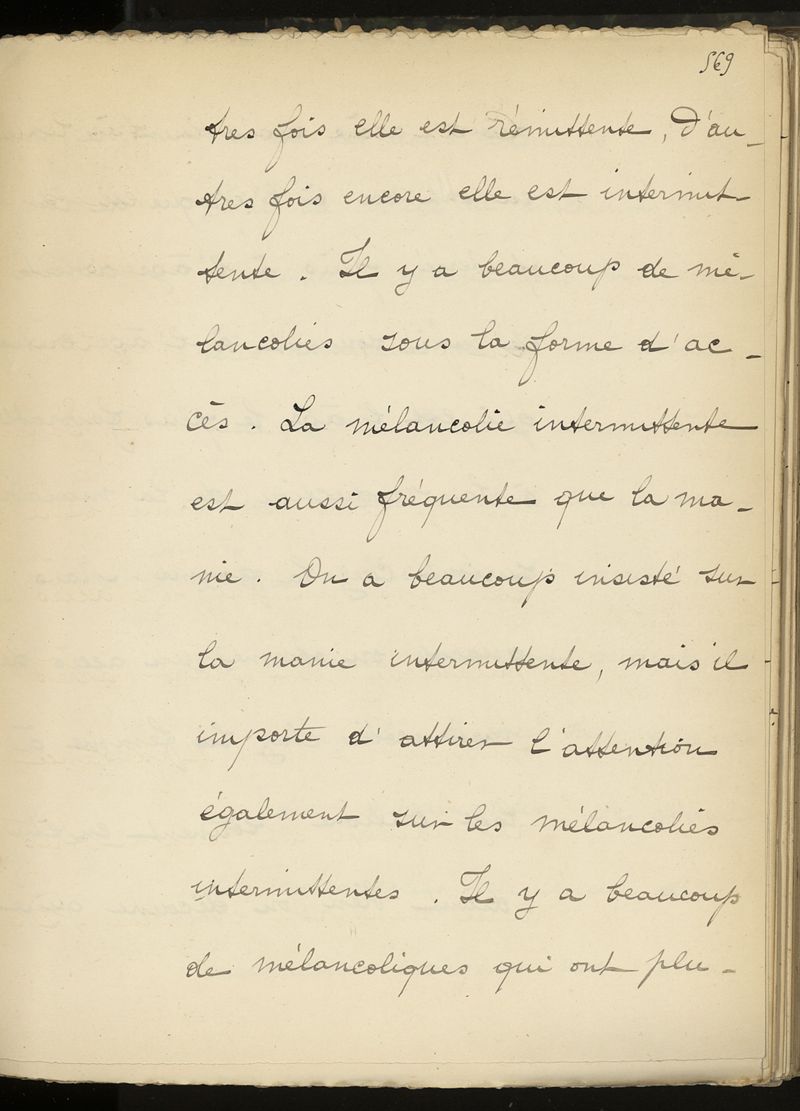 569
tres fois elle est rémittente, d'au-
tres fois encore elle est intermit-
tente. Il y a beaucoup de mé-
lancolies sous la forme d'ac-
cès. La mélancolie intermittente
est aussi fréquente que la ma-
nie. On a beaucoup insisté sur
la manie intermittente, mais il
importe d'attirer l'attention
également sur les mélancolies
intermittentes. Il y a beaucoup
de mélancoliques qui ont plu-